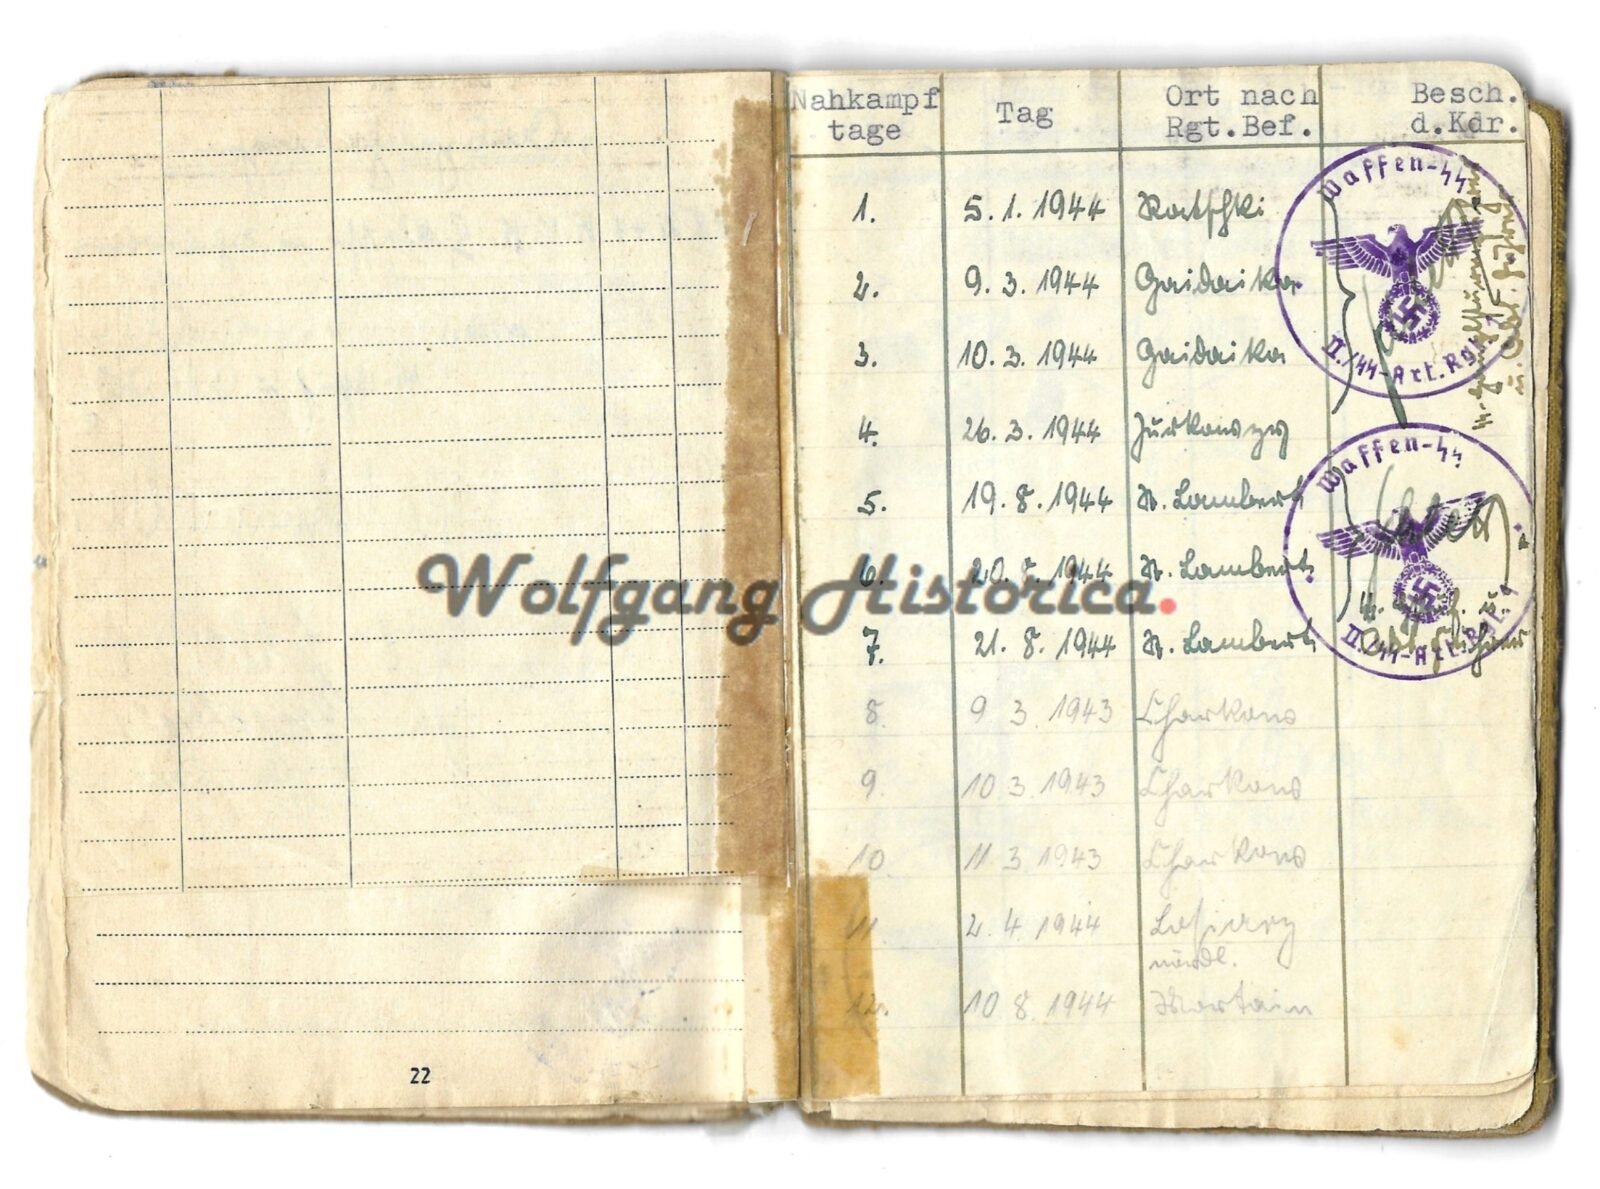 22
Nahkampf
tage
Tag
Ort nach
Rgt.Bef.
Besch.
d.Kdr.
1. 5.1.1944 Ratschki
2. 9.3.1944 Gaidaika
3. 10.3.1944 Gaidaika
4. 26.3.1944
5. 19.8.1944 St. Lambert
6. 20.8.1944 St. Lambert
7. 21.8.1944 St. Lambert
8. 9 3 1943 Charkow
9. 10 3.1943 Charkow
10. 11 3 1943 Charkow
11. 2.4.1944
nördl.
12. 10 8.1944 Mortain
Waffen-SS
II./SS-Art.Rgt. 1
Waffen-SS
II./SS-Art.Rgt. 1
Wolfgang Historica.